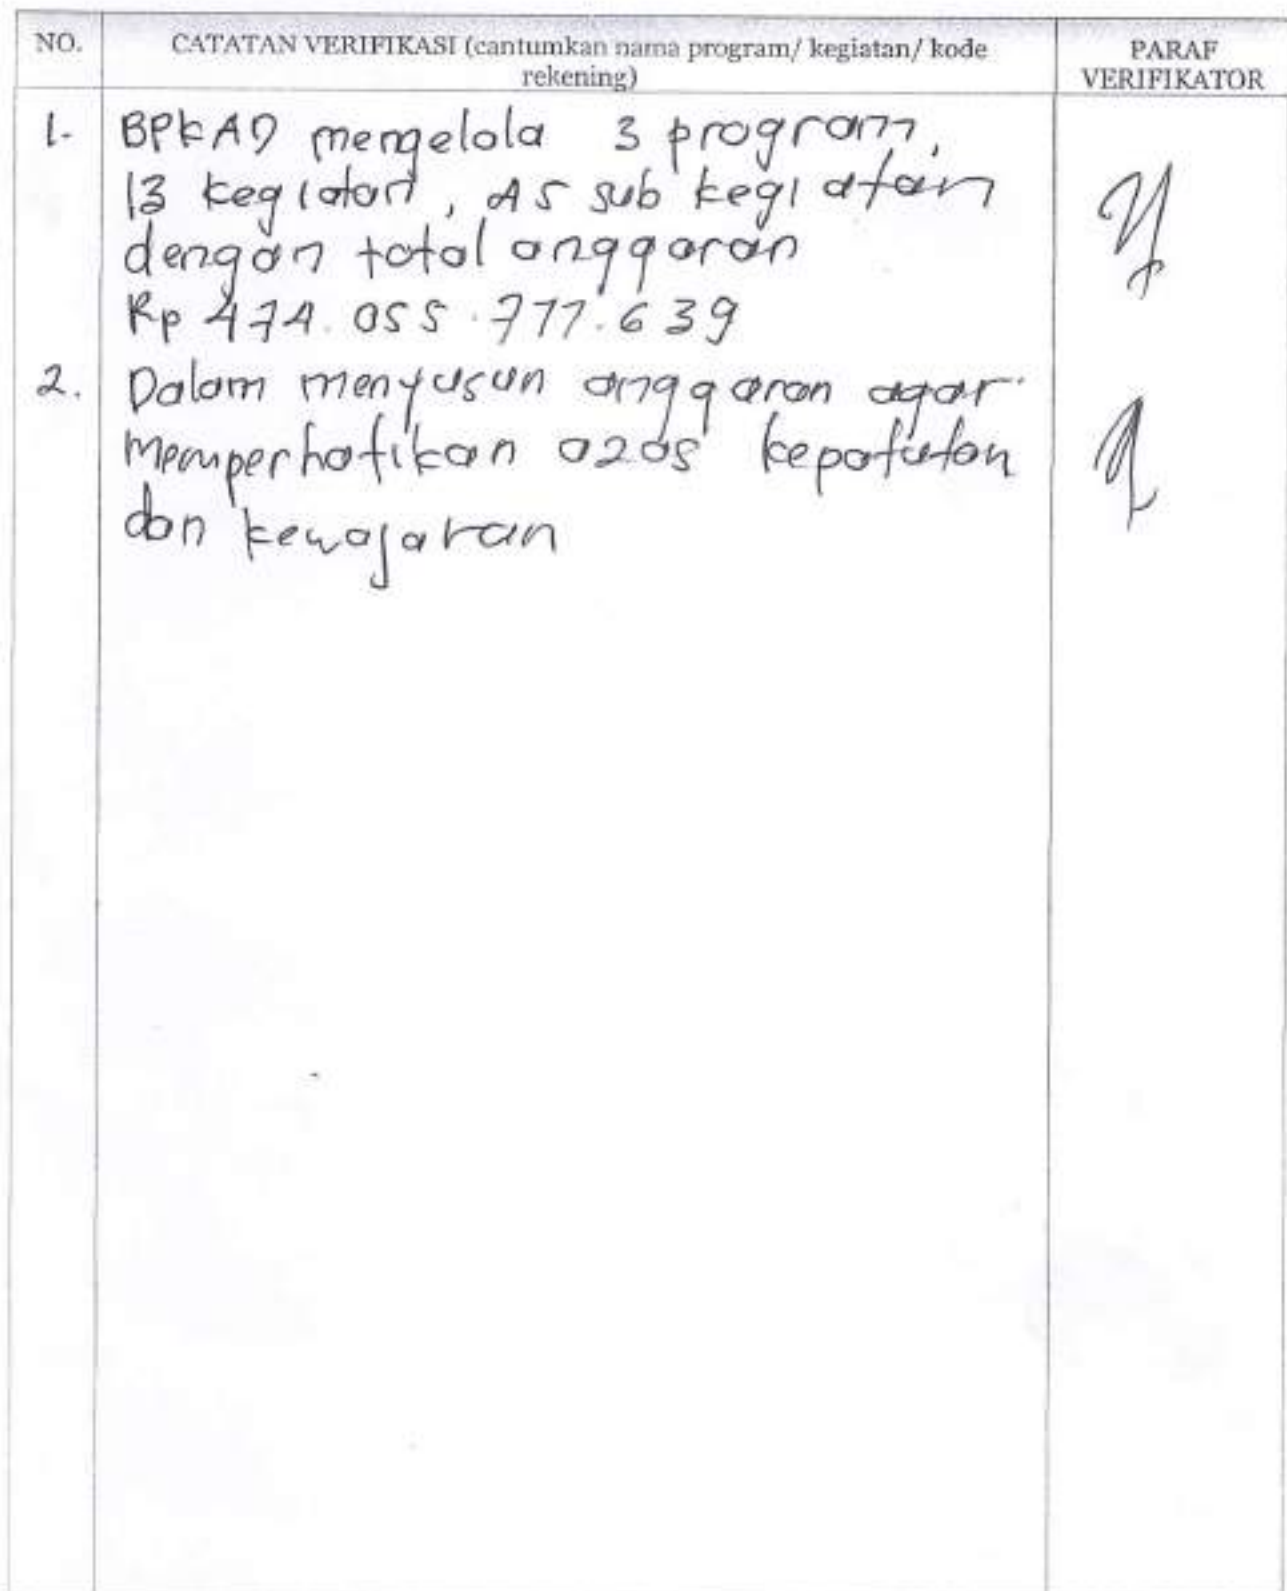 NO.
CATATAN VERIFIKASI (cantumkan nama program/ kegiatan/ kode
rekening)
PARAF
VERIFIKATOR
1. BPKAD mengelola 3 program,
13 kegiatan, 45 sub kegiatan
dengan total anggaran
Rp 474.055.777.639
2. Dalam menyusun anggaran agar
memperhatikan azas kepatutan
dan kewajaran